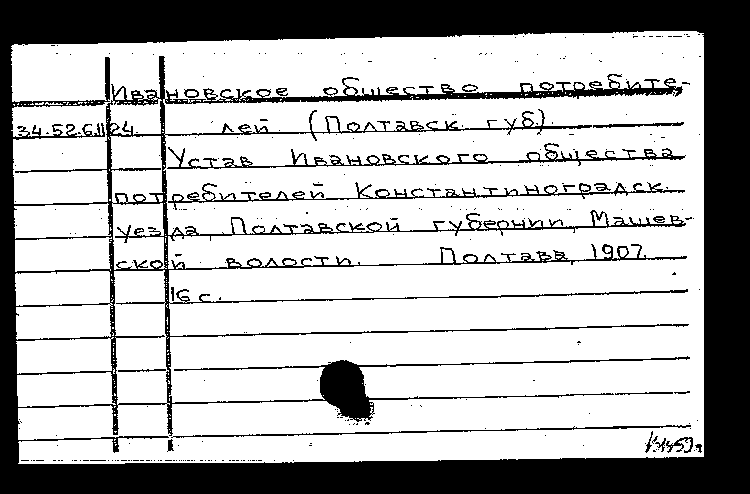 Ивановское общество потребите-
34.52.6.11 24. лей (Полтавск. губ).
Устав Ивановского общества
потребителей Константиноградск.
уезда, Полтавской губернии, Машев-
ской волости. Полтава, 1907.
16 с.